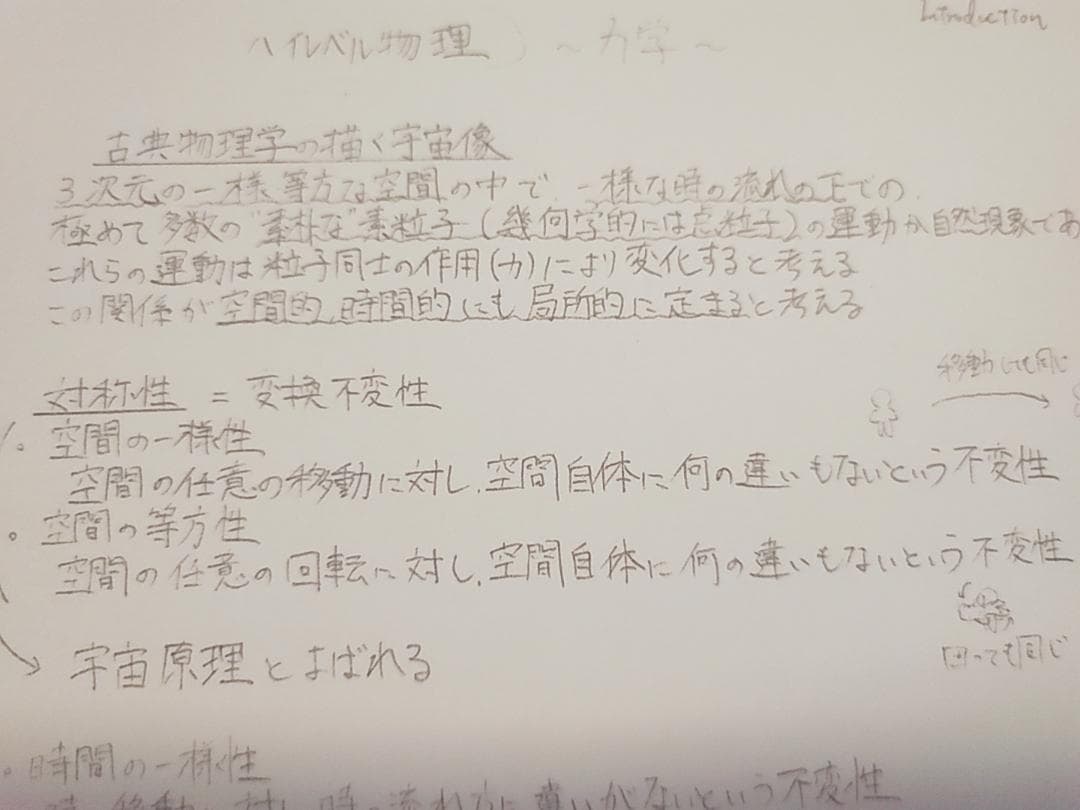 Introduction
ハイレベル物理 ～力学～
古典物理学の描く宇宙像
3次元の一様等方な空間の中で、一様な時の流れの下での
極めて多数の"素朴な"素粒子(幾何学的には点粒子)の運動が自然現象であ
これらの運動は粒子同士の作用(力)により変化すると考える
この関係が空間的、時間的にも局所的に定まると考える
対称性 = 変換不変性
移動しても同じ
・空間の一様性
空間の任意の移動に対し、空間自体に何の違いもないという不変性
・空間の等方性
空間の任意の回転に対し、空間自体に何の違いもないという不変性
回っても同じ
宇宙原理とよばれる
・時間の一様性
時 移動 対し 時の流れ方に違いがないという不変性